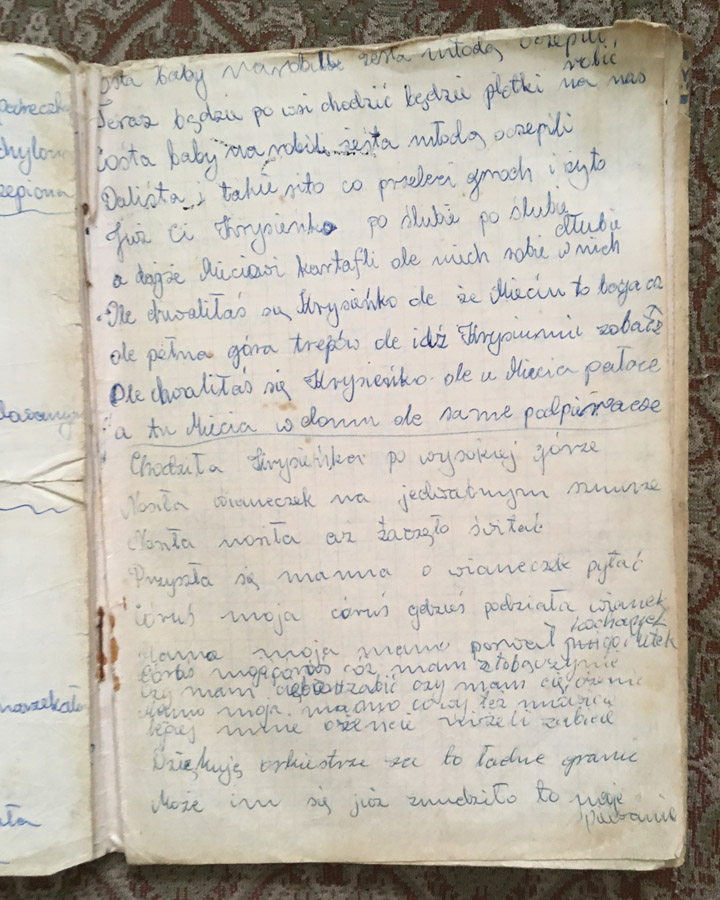 Cośta baby narobiłbe zesta młodą oczepili
Teraz będzie po wsi chodzić będzie plotki robić na nas
Cośta baby narobili żeśta młodą oczepili
Daliśta i takie sito co przeleci groch i żyto
Już ci Krysieńko po ślubie po ślubie
a dajże Mieciowi kartofli ole niech sobie dłubie w nich
Ole chwaliłaś się Krysieńko ole że Mieciu to bogacz
ole pełna góra trepów ole idź Krysiuniu zobacz
Ole chwaliłaś się Krysieńko ole u Miecia pałace
a tu Miecia w domu ole same podpieracze
Chodziła Krysieńka po wysokiej górze
Nosiła wianeczek na jedwabnym sznurze
Nosiła nosiła aż zaczęło świtać
Przyszła się mamna o wianeczek pytać
Córuś moja córuś gdzieś podziała wianek
Mamo moja mamo porwał kochanek
Córuś moja córuś cóż mam złoboczynie
czy mam ciebie zabić czy mam cię ożenić
Mamo moja mamo cóż też
lepiej mnie ożencie niżeli zabicie
Dziękuję orkiestrze za to ładne granie
Może im się już znudziło to moje